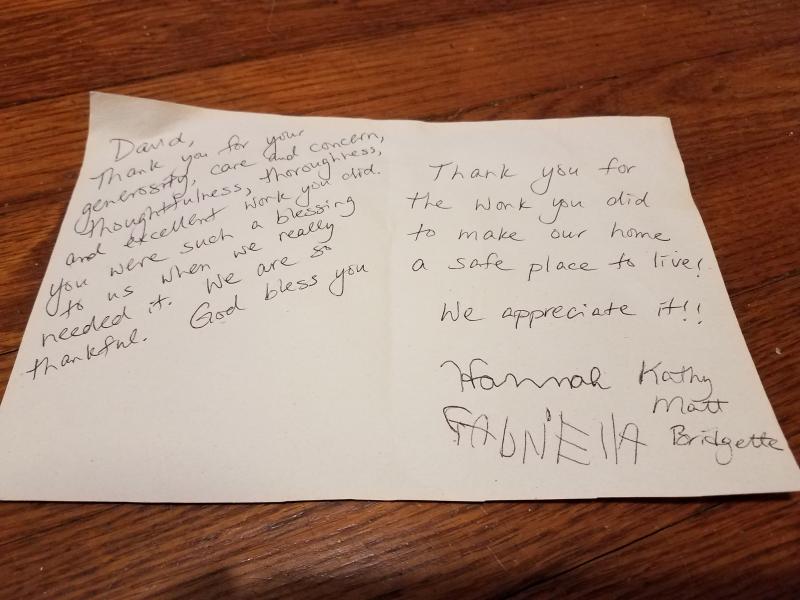 David,
Thank you for your
generosity, care and concern,
thoughtfulness, thoroughness,
and excellent work you did.
You were such a blessing
to us when we really
needed it. We are so
thankful. God bless you
Thank you for
the work you did
to make our home
a safe place to live!
We appreciate it!!
Hannah Kathy
Matt
Bridgette